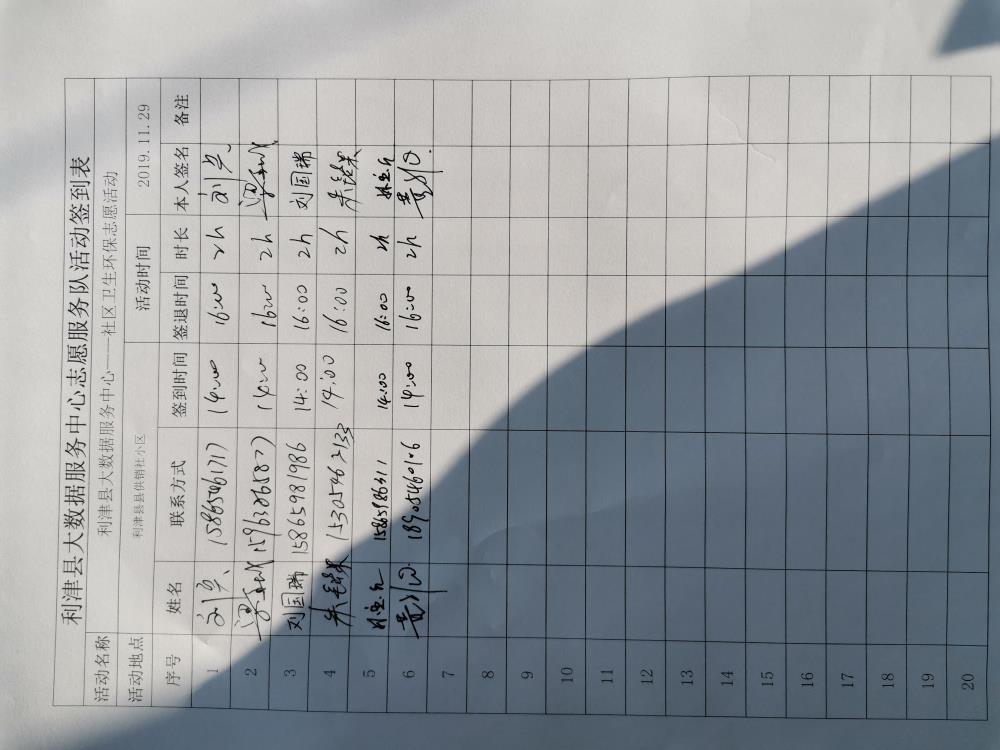 利津县大数据服务中心志愿服务队活动签到表
活动名称 利津县大数据服务中心——社区卫生环保志愿活动
活动地点 利津县县供销社小区 活动时间 2019.11.29
序号 姓名 联系方式 签到时间 签退时间 时长 本人签名 备注
1 14:00 16:00 2h
2 14:00 16:00 2h
3 刘国瑞 15865981986 14:00 16:00 2h 刘国瑞
4 15305462133 14:00 16:00 2h
5 14:00 16:00 2h
6 18905460106 14:00 16:00 2h
7
8
9
10
11
12
13
14
15
16
17
18
19
20